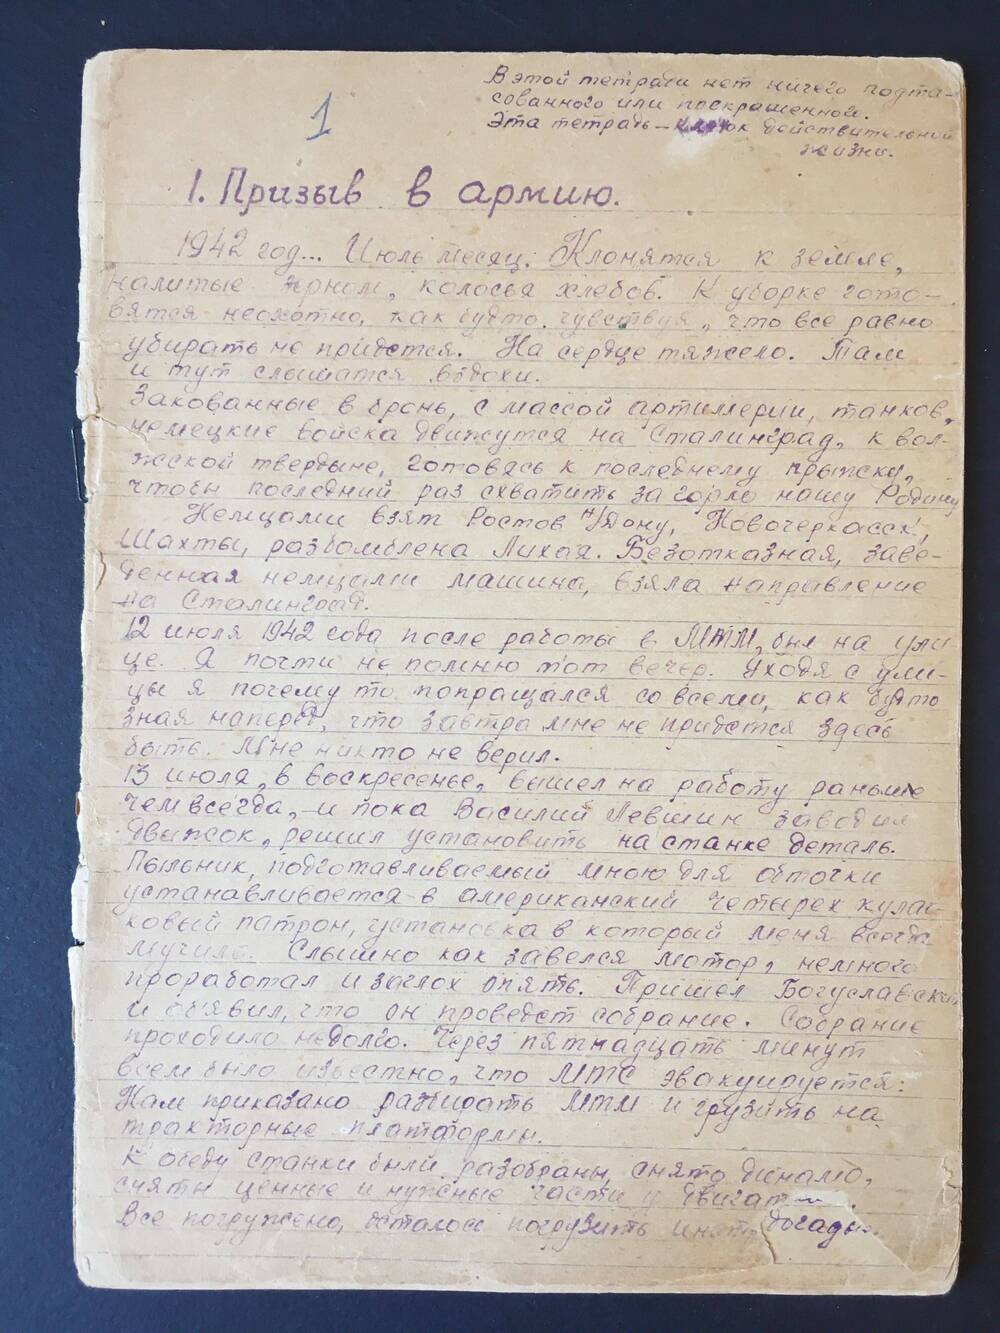 В этой тетради нет ничего подта-
сованного или прекрашенного.
Эта тетрадь – клочок действительной
жизни.
1
1. Призыв в армию.
1942 год... Июль месяц. Клонятся к земле,
налитые зерном, колосья хлебов. К уборке гото-
вятся неохотно, как будто чувствуя, что все равно
убирать не придется. На сердце тяжело. Там
и тут слышатся вздохи.
Закованные в бронь, с массой артиллерии, танков,
немецкие войска движутся на Сталинград, к вол-
жской твердыне, готовясь к последнему прыжку,
чтобы последний раз схватить за горло нашу Родину
Немцами взят Ростов н/Дону, Новочеркасск,
Шахты, разбомблена Лихая. Безотказная, заве-
денная немцами машина, взяла направление
на Сталинград.
12 июля 1942 года после работы в МТМ, был на ули-
це. Я почти не помню тот вечер. Уходя с ули-
цы я почему то попращался со всеми, как будто
зная наперед, что завтра мне не придется здесь
быть. Мне никто не верил.
13 июля, в воскресенье, вышел на работу раньше
чем всегда, и пока Василий Левшин заводил
движок, решил установить на станке деталь.
Пыльник, подготавливаемый мною для обточки
устанавливается в американский четырех кулач-
ковый патрон, установка в который меня всегда
мучила. Слышно как завелся мотор, немного
проработал и заглох опять. Пришел Богуславский
и об'явил, что он проведет собрание. Собрание
проходило недолго. Через пятнадцать минут
всем было известно, что МТС эвакуируется:
Нам приказано разбирать МТМ и грузить на
тракторные платформы.
К обеду станки были разобраны, снято динамо,
сняты ценные и нужные части у двигат
Все погружено, осталось погрузить